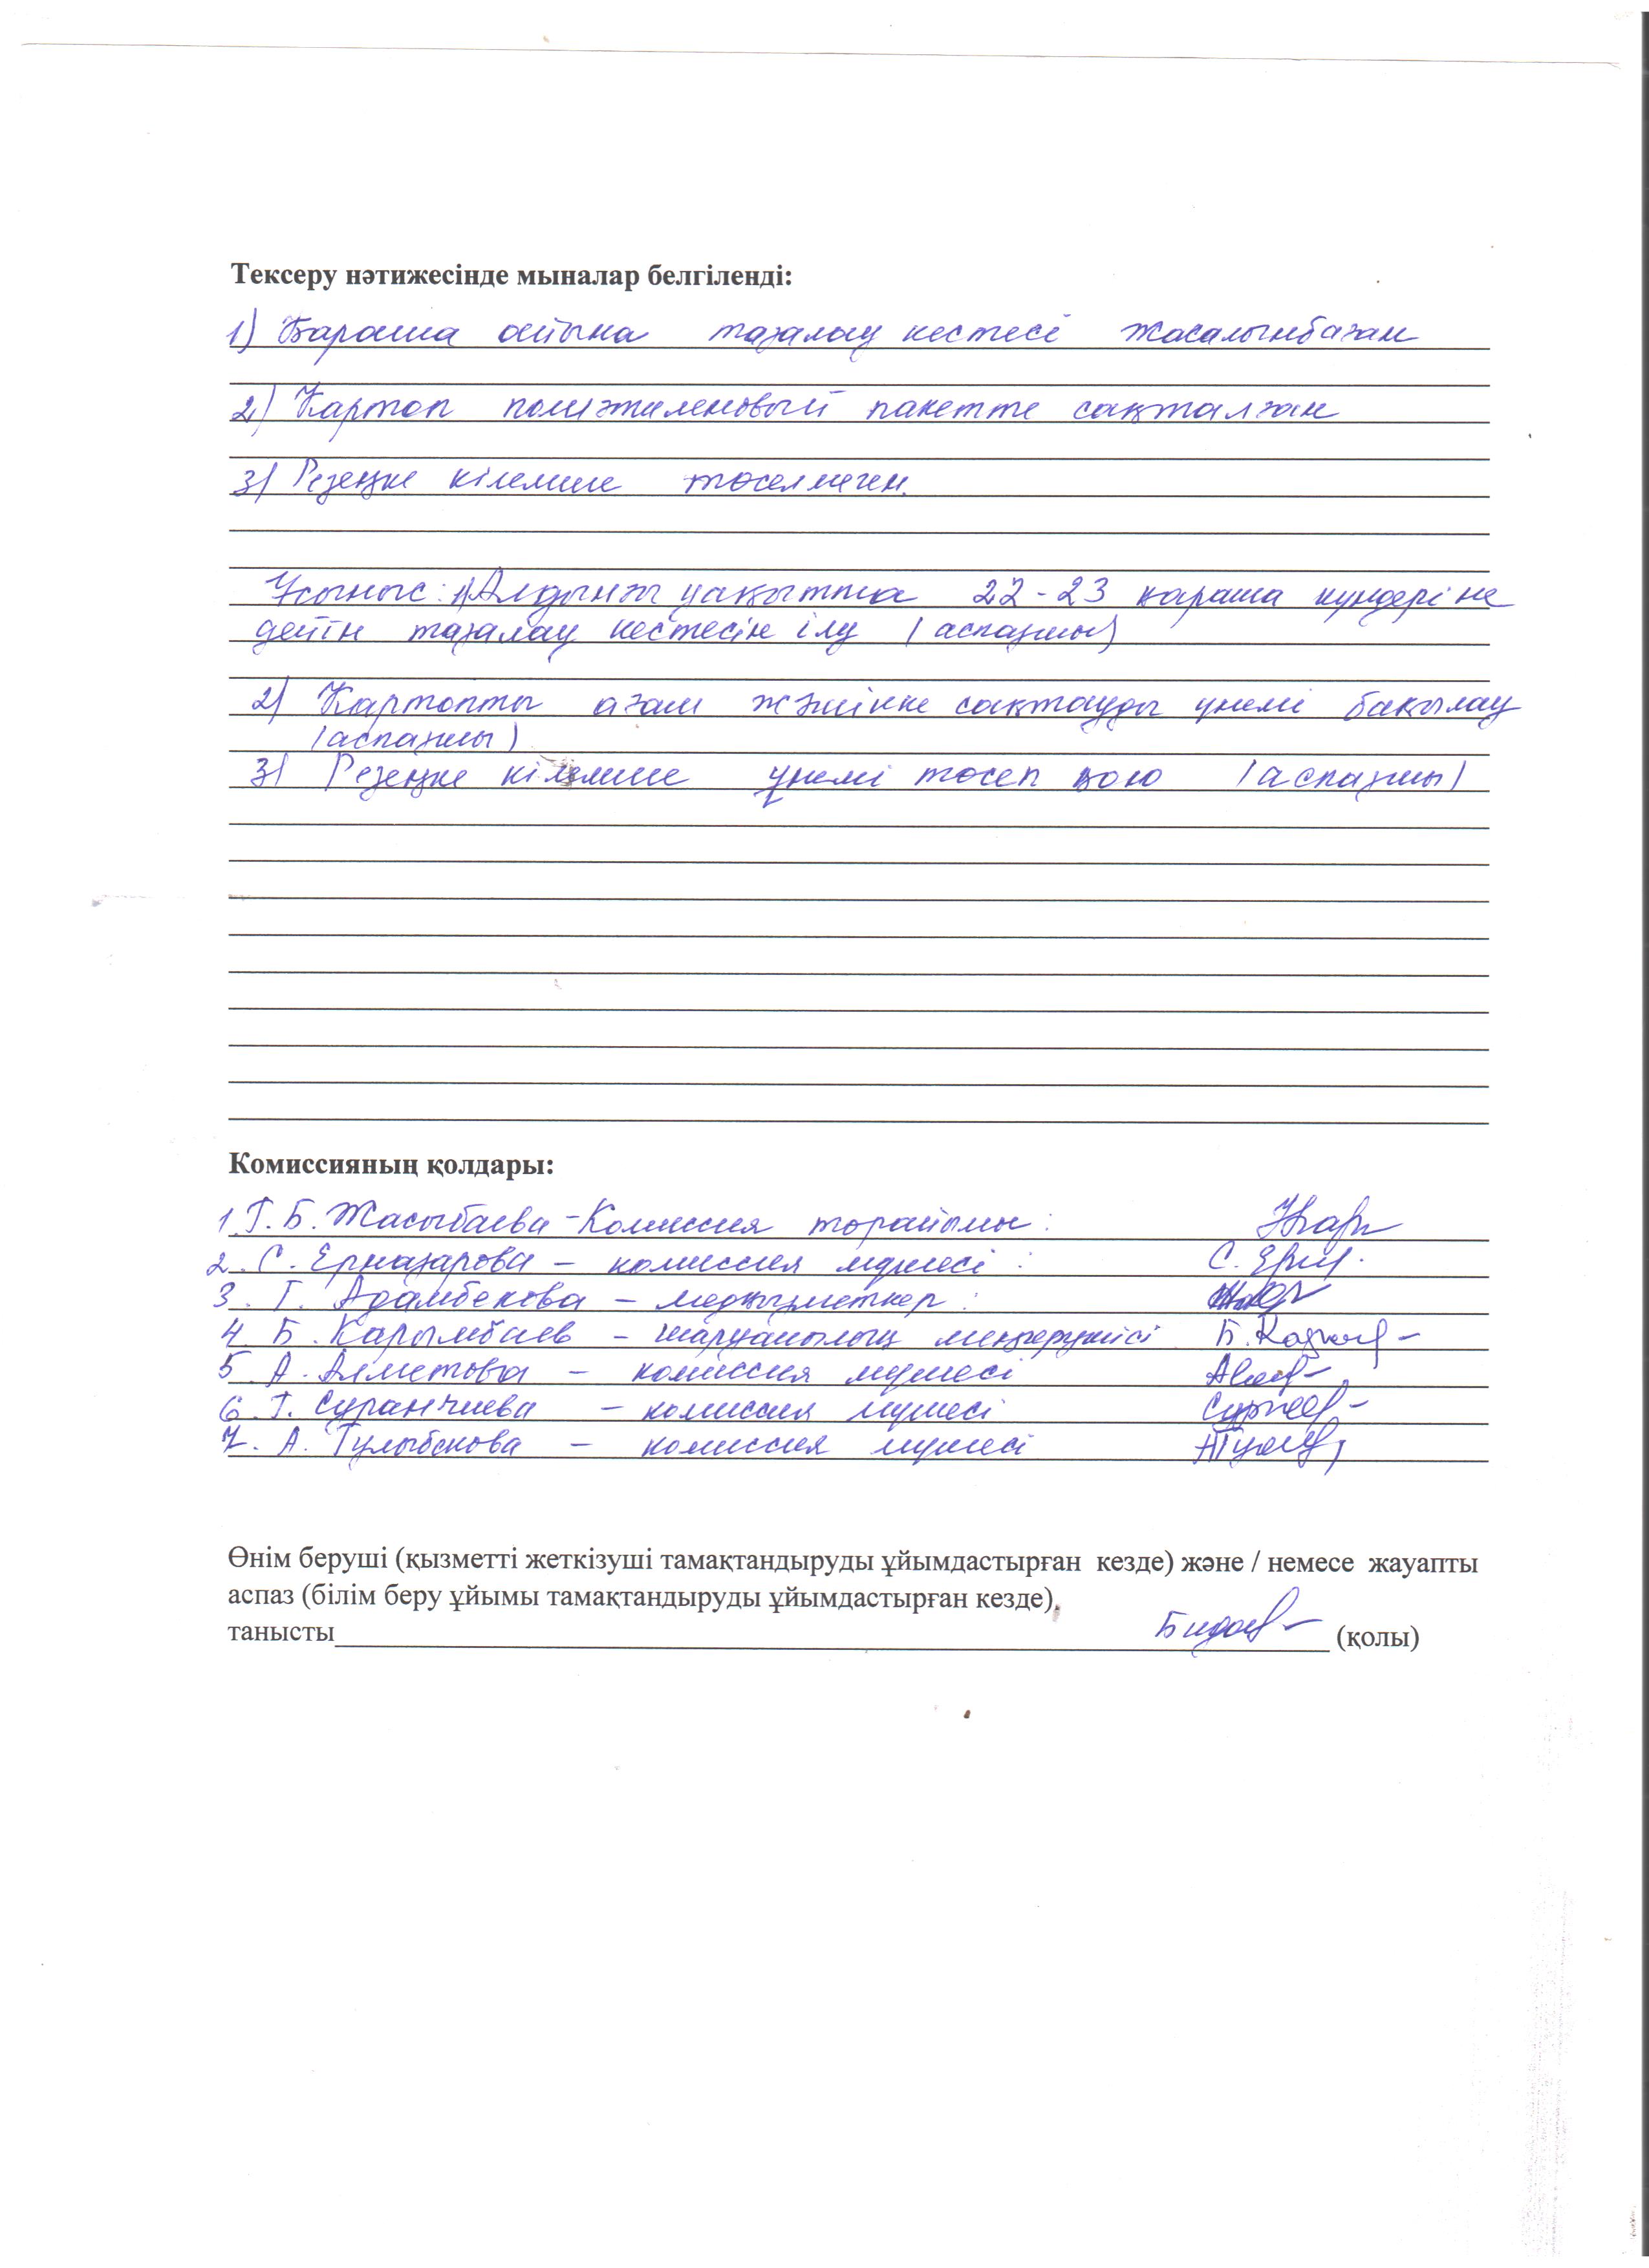 Тексеру нәтижесінде мыналар белгіленді:
1) Қараша айына тазалау кестесі жасалынбаған
2) Картоп полиэтиленовый пакетте сақталған
3) Резеңке кілемше төселмеген.
Ұсыныс: 1) Алдынғы уақытта 22-23 қараша күндеріне
дейін тазалау кестесін ілу (аспазшы)
2) Картопты ағаш жәшікке сақтауды үнемі бақылау
(аспазшы)
3) Резеңке кілемше үнемі төсеп қою (аспазшы)
Комиссияның қолдары:
1. Г. Б. Жасыбаева - Комиссия төрайымы:
2. С. Ерназарова - комиссия мүшесі: С. Ерн.
3. Г. Адамбекова - медқызметкер:
4 Б. Карымбаев - шаруашылық меңгерушісі
5 А. Ахметова - комиссия мүшесі
6. Г. Суранчиева - комиссия мүшесі
7. А. Тулыбекова - комиссия мүшесі
Өнім беруші (қызметті жеткізуші тамақтандыруды ұйымдастырған кезде) және / немесе жауапты
аспаз (білім беру ұйымы тамақтандыруды ұйымдастырған кезде),
танысты (қолы)